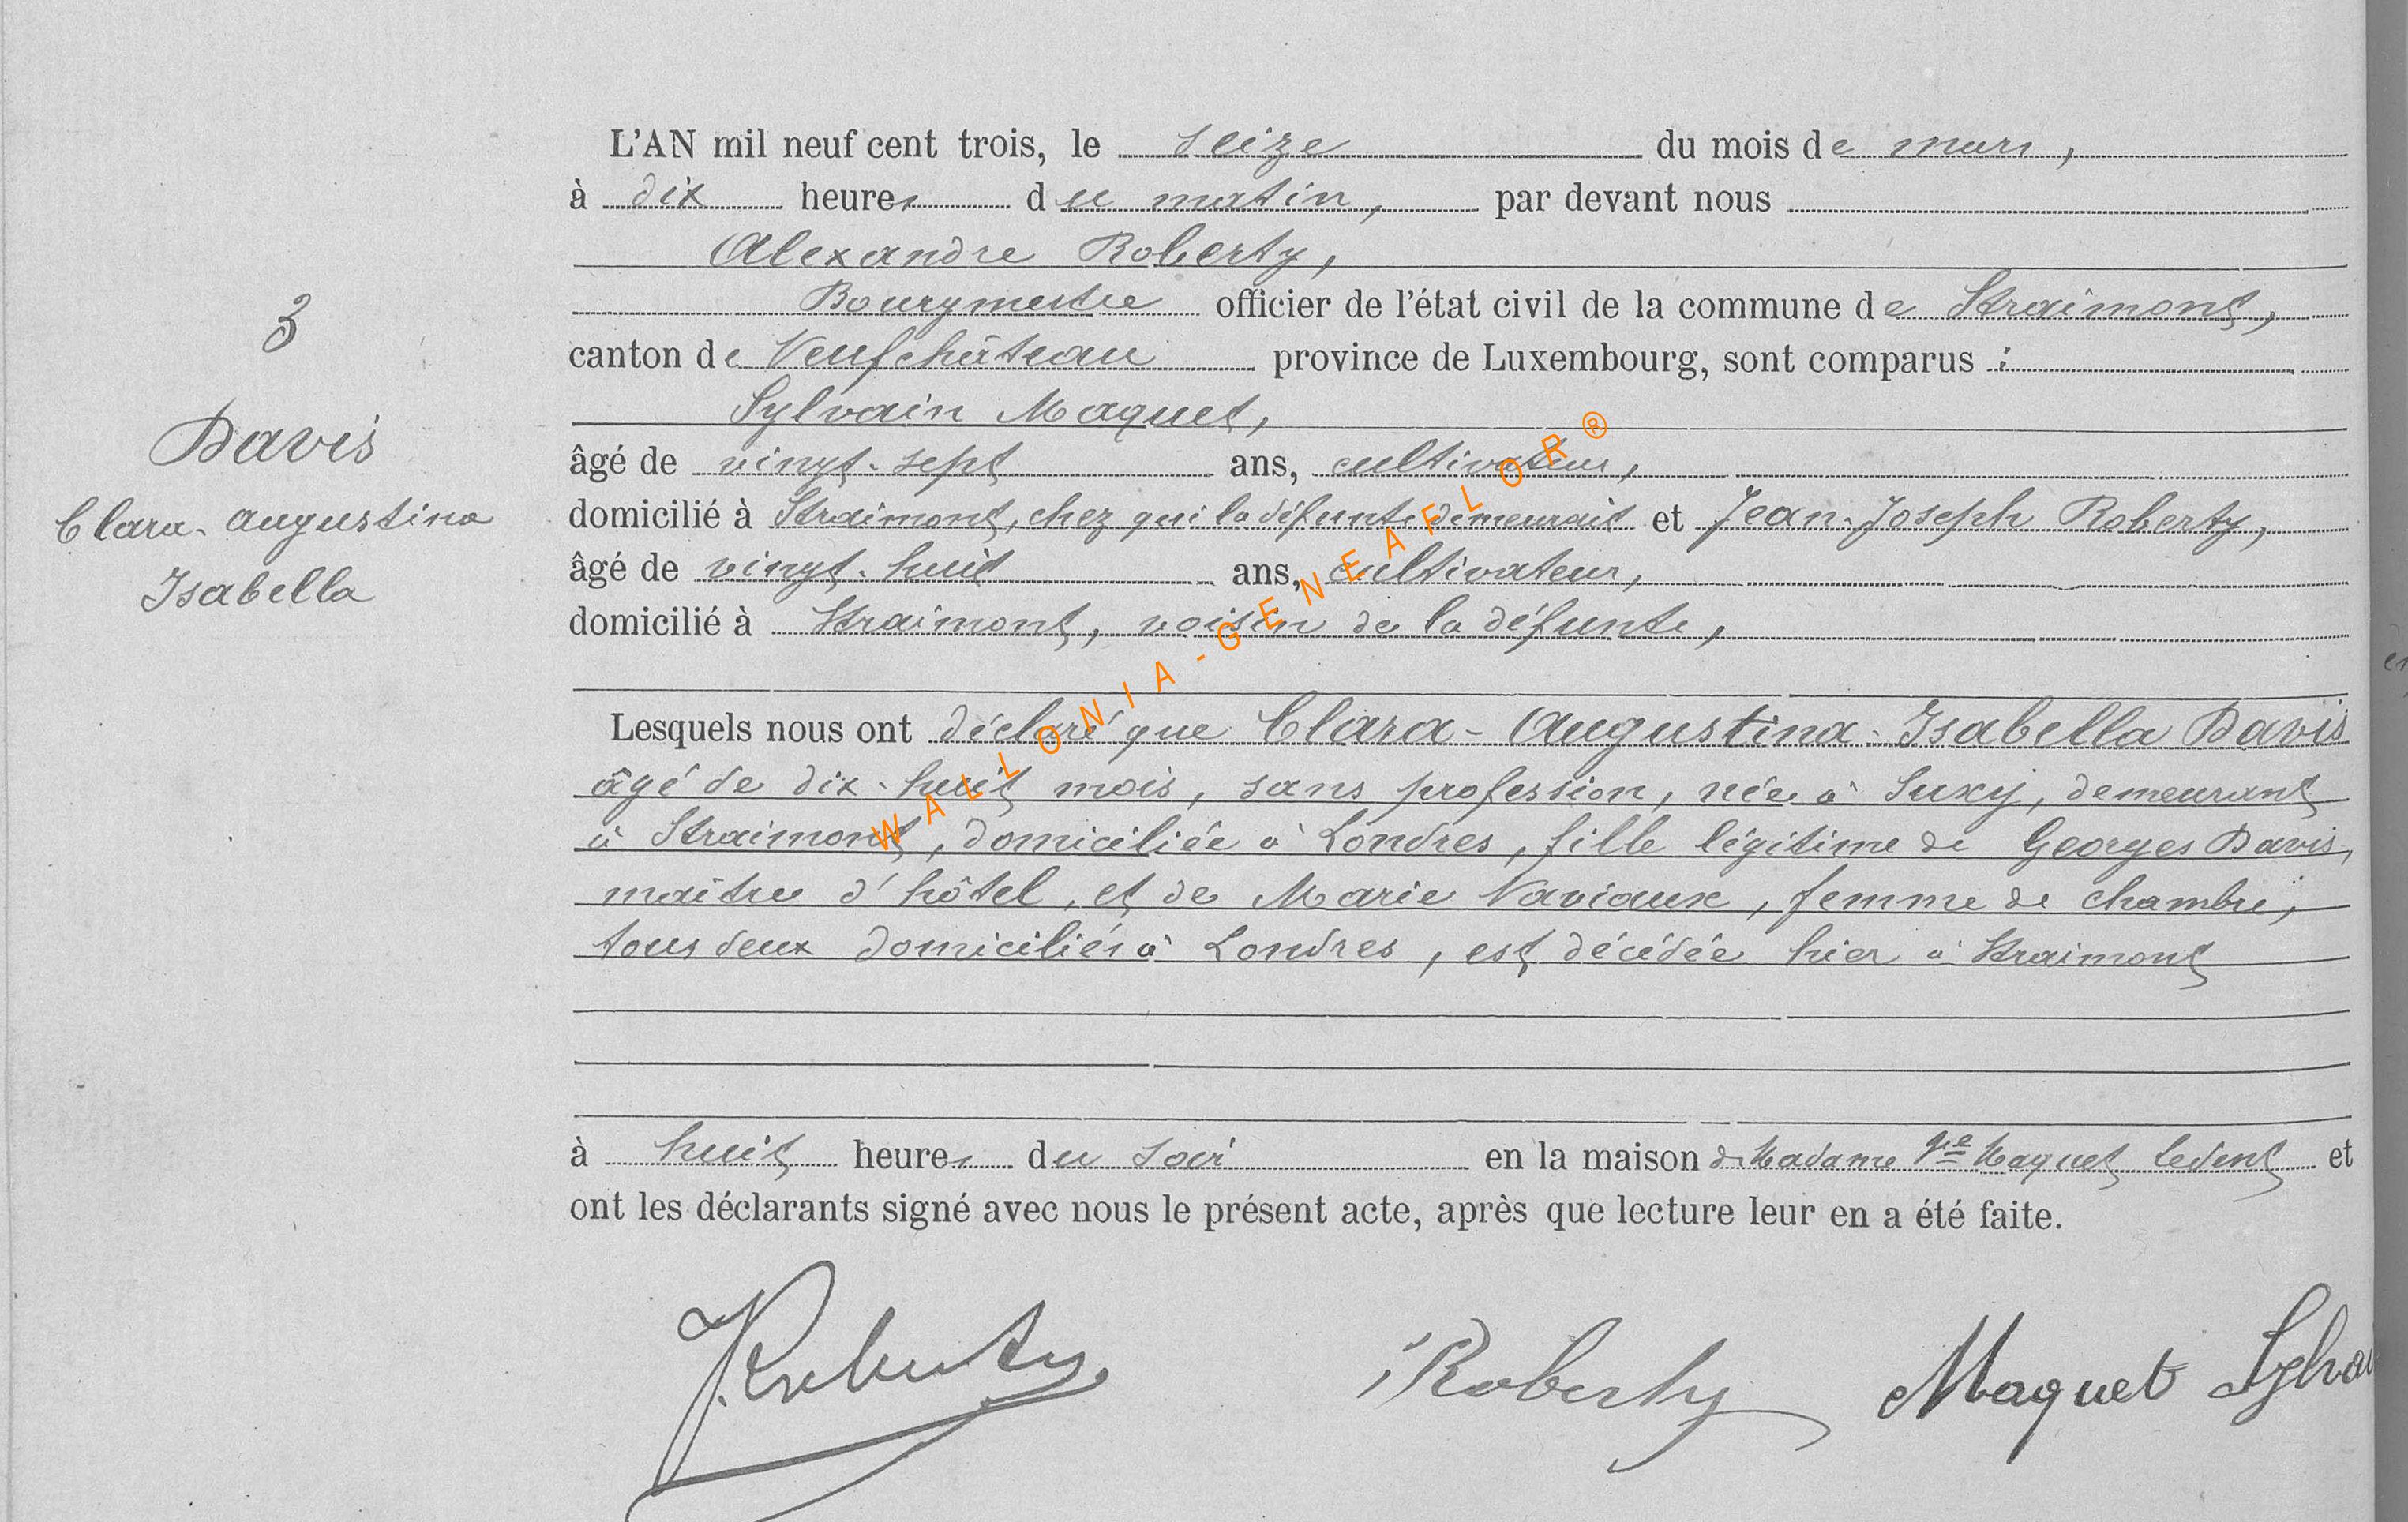 L'AN mil neuf cent trois, le seize du mois de mars,
à dix heures du matin, par devant nous
Alexandre Roberty,
Bourgmestre officier de l'état civil de la commune de Straimont,
canton de Neufchâteau province de Luxembourg, sont comparus :
Sylvain Maquet,
âgé de vingt-sept ans, cultivateur,
domicilié à Straimont, chez qui la défunte demeurait et Jean-Joseph Roberty,
âgé de vingt-huit ans, cultivateur,
domicilié à Straimont, voisin de la défunte,
3
Davis
Clara-Augustina
Isabella
Lesquels nous ont déclaré que Clara-Augustina-Isabella Davis
âgé de dix-huit mois, sans profession, née à Suxy, demeurant
à Straimont, domiciliée à Londres, fille légitime de Georges Davis,
maître d'hôtel, et de Marie Naviaux, femme de chambre,
tous deux domiciliés à Londres, est décédée hier à Straimont
à huit heures du soir en la maison de Madame Vve Maquet Ledent et
ont les déclarants signé avec nous le présent acte, après que lecture leur en a été faite.
Roberty Roberty Maquet
WALLONIA-GENEAFLOR®